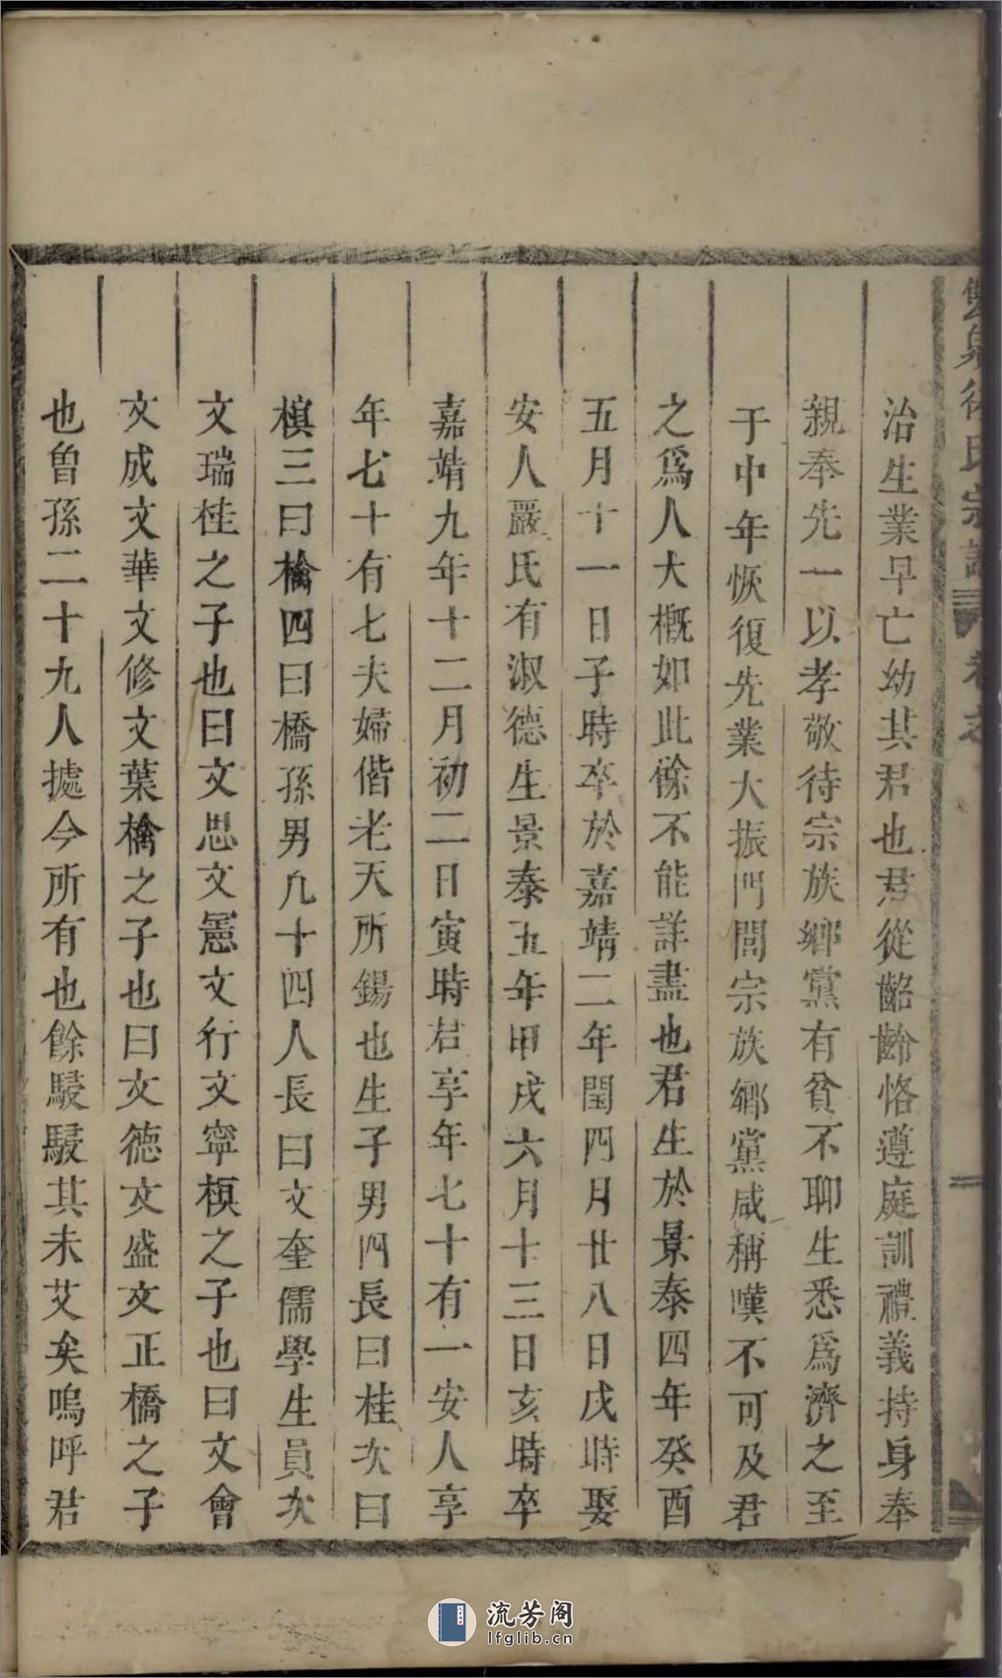 治生業早亡幼其君也君從齠齡恪遵庭訓禮義持身奉
親奉先一以孝敬待宗族鄉黨有貧不聊生悉爲濟之至
于中年恢復先業大振門閭宗族鄉黨咸稱嘆不可及君
之爲人大槪如此餘不能詳盡也君生於景泰四年癸酉
五月十一日子時卒於嘉靖二年閏四月廿八日戌時娶
安人嚴氏有淑德生景泰五年甲戌六月十三日亥時卒
嘉靖九年十二月初二日寅時君享年七十有一安人享
年七十有七夫婦偕老天所錫也生子男四長曰桂次曰
槙三曰檎四曰橋孫男凡十四人長曰文奎儒學生員次
文瑞桂之子也曰文思文憲文行文寧槙之子也曰文會
文成文華文修文葉檎之子也曰文德文盛文正橋之子
也曾孫二十九人據今所有也餘駸駸其未艾矣嗚呼君
流芳阁
lfglib.cn